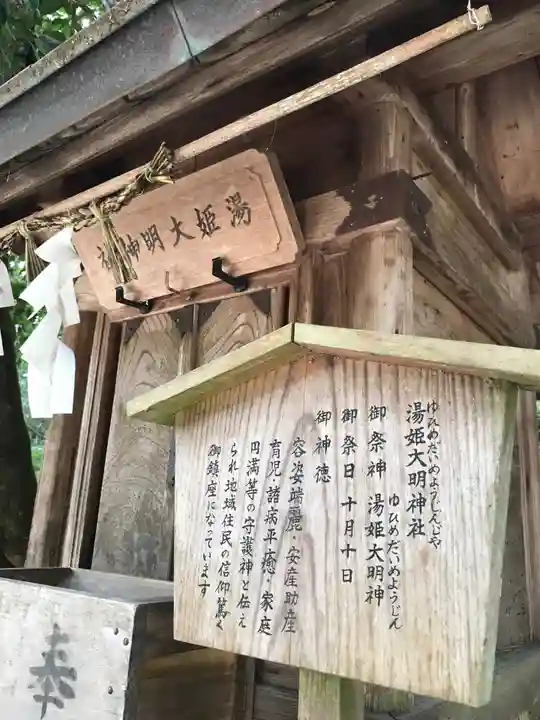 湯姫大明神社
ゆひめだいめようじんじゃ
湯姫大明神社
ゆひめだいめようじん
御祭神 湯姫大明神
御祭日 十月十日
御神徳
容姿端麗・安産助産
育児・諸病平癒・家庭
円満等の守護神と伝え
られ地域住民の信仰篤く
御鎮座になっています
奉